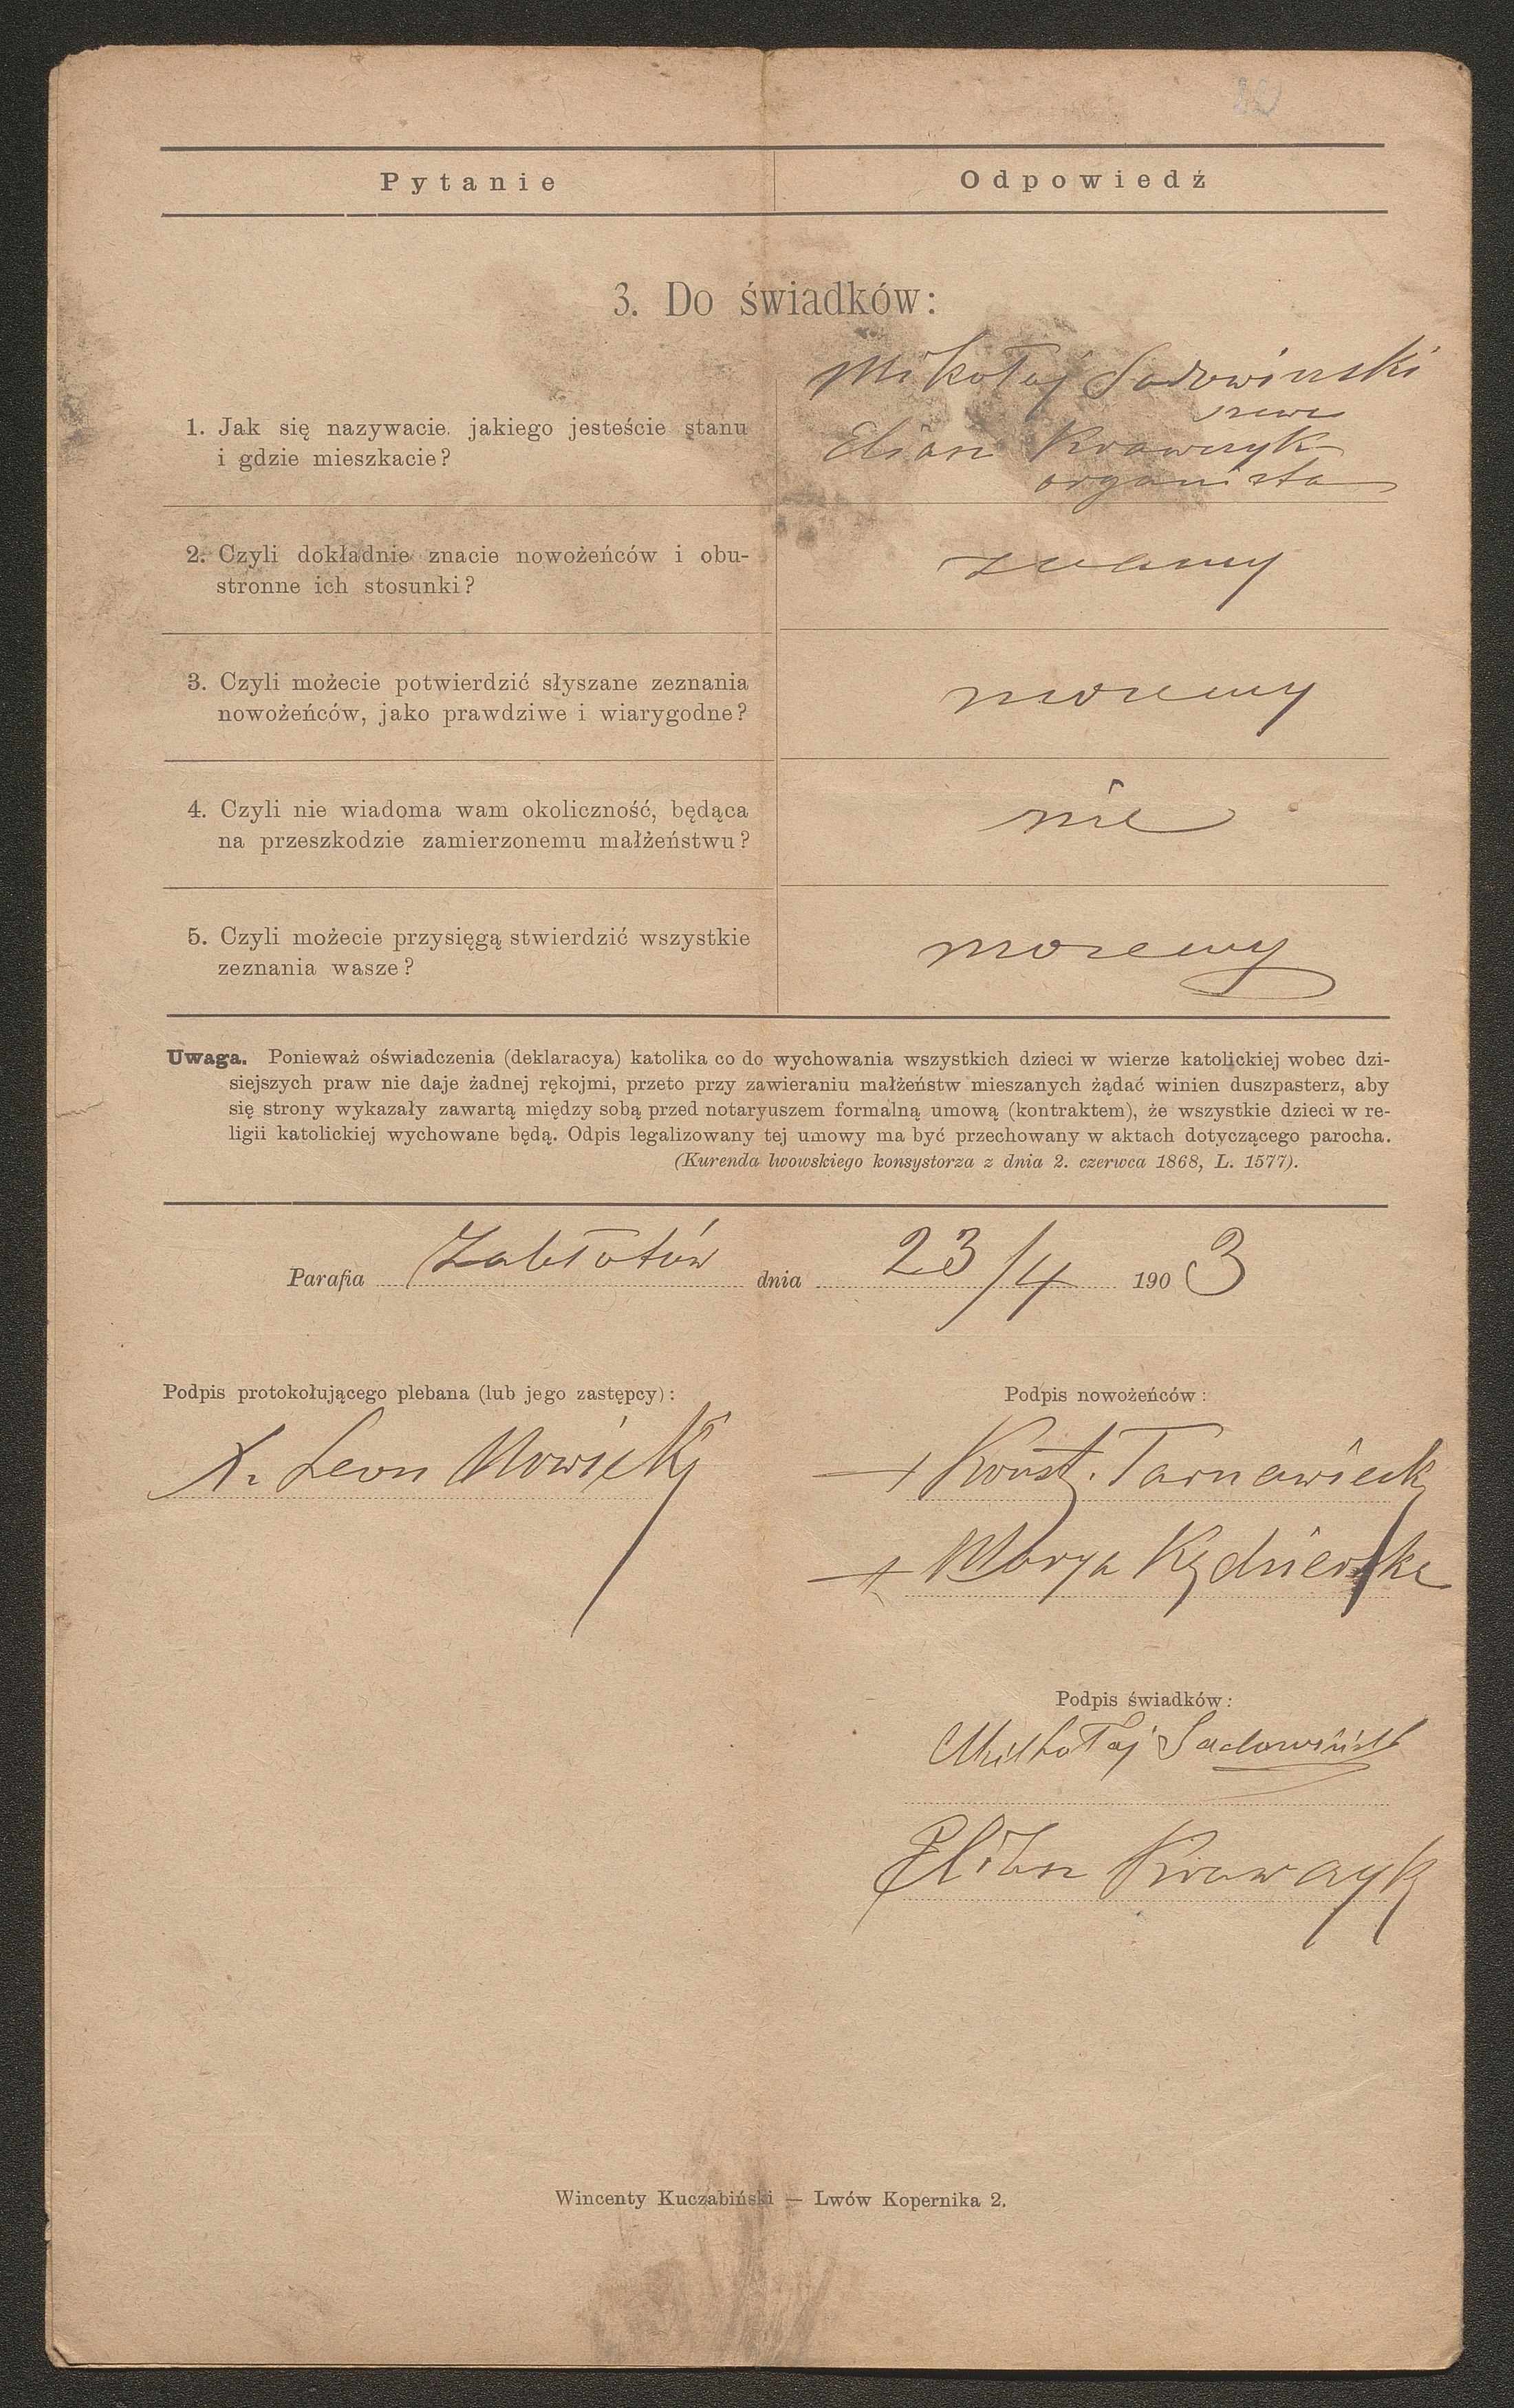 Pytanie
Odpowiedź
3. Do świadków:
1. Jak się nazywacie, jakiego jesteście stanu
i gdzie mieszkacie?
Mikołaj Sadowinski
szewc
Eliasz Krawczyk
organista
2. Czyli dokładnie znacie nowożeńców i obu-
stronne ich stosunki?
znamy
3. Czyli możecie potwierdzić słyszane zeznania
nowożeńców, jako prawdziwe i wiarygodne?
mozemy
4. Czyli nie wiadoma wam okoliczność, będąca
na przeszkodzie zamierzonemu małżeństwu?
nie
5. Czyli możecie przysięgą stwierdzić wszystkie
zeznania wasze?
mozemy
Uwaga. Ponieważ oświadczenia (deklaracya) katolika co do wychowania wszystkich dzieci w wierze katolickiej wobec dzi-
siejszych praw nie daje żadnej rękojmi, przeto przy zawieraniu małżeństw mieszanych żądać winien duszpasterz, aby
się strony wykazały zawartą między sobą przed notaryuszem formalną umową (kontraktem), że wszystkie dzieci w re-
ligii katolickiej wychowane będą. Odpis legalizowany tej umowy ma być przechowany w aktach dotyczącego parocha.
(Kurenda lwowskiego konsystorza z dnia 2. czerwca 1868, L. 1577).
Parafia Zabłotów dnia 23/4 1903
Podpis protokołującego plebana (lub jego zastępcy):
X. Leon Nowicki
Podpis nowożeńców:
+ Konst. Tarnawiecki
+ Marya Kędzierska
Podpis świadków:
Mikołaj Sadowiński
Eliasz Krawczyk
Wincenty Kuczabiński — Lwów Kopernika 2.